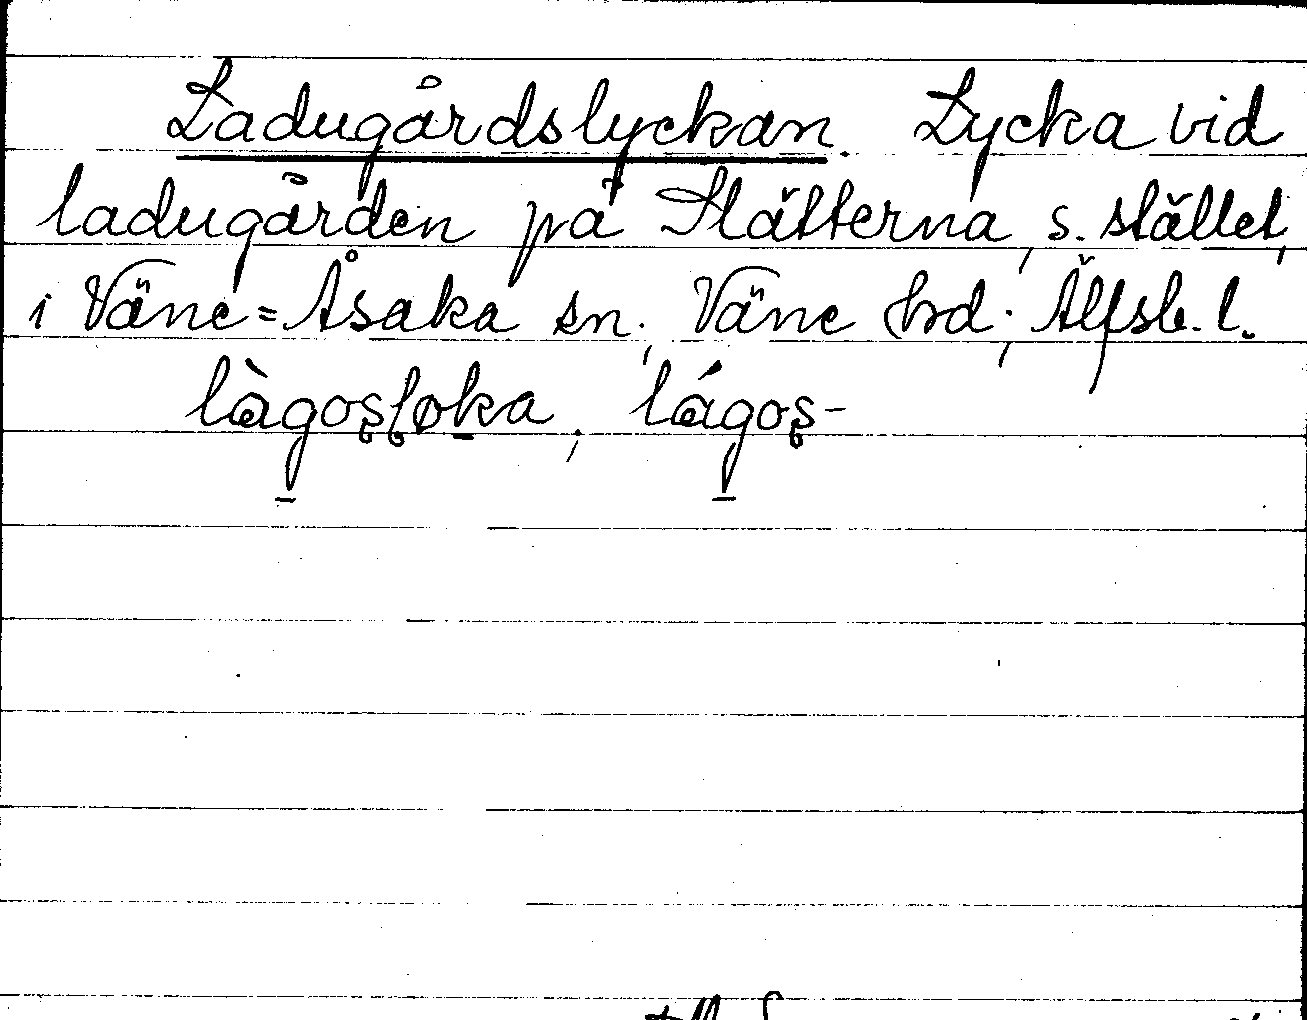 Ladugårdslyckan. Lycka vid
ladugården på Slätterna, s. stället,
i Väne=Åsaka sn., Väne hrd., Älfsb. l.
làgosloka, lágos-